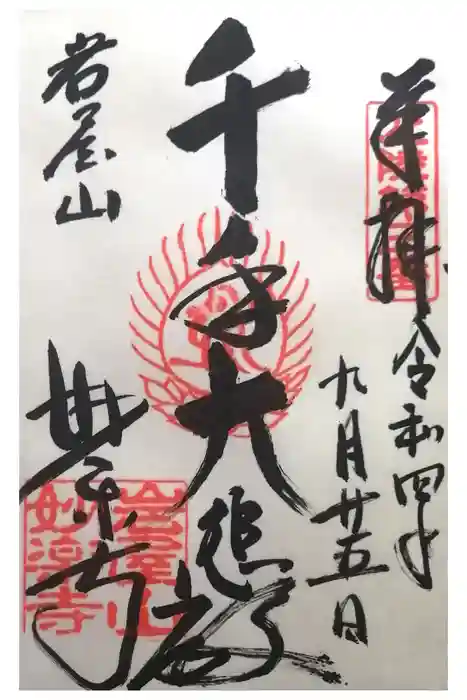 奉拝
令和四年
九月廿五日
千手大悲
岩屋山
妙楽寺
岩屋山
妙楽寺